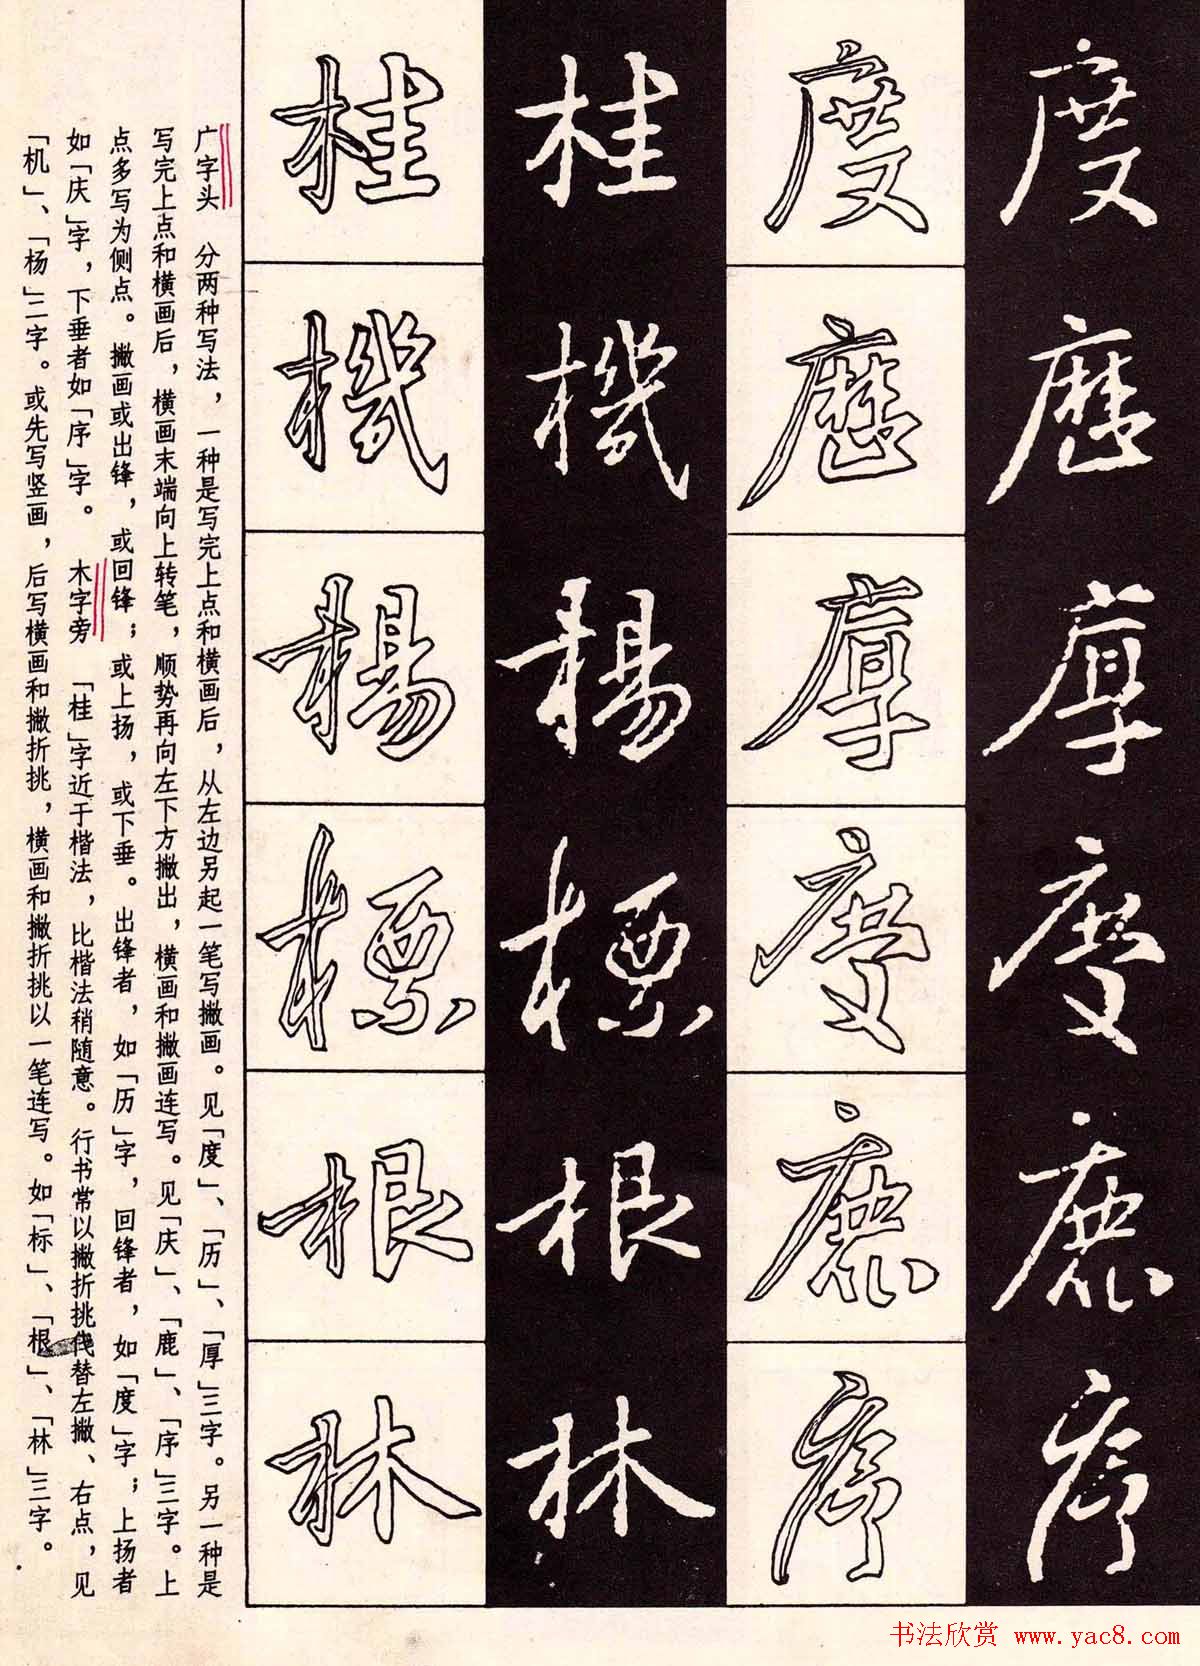 度歷厚慶鹿序
度歷厚慶鹿序
桂機楊標根林
桂機楊標根林
广字头　分两种写法，一种是写完上点和横画后，从左边另起一笔写撇画。见「度」、「历」、「厚」三字。另一种是
写完上点和横画后，横画末端向上转笔，顺势再向左下方撇出，横画和撇画连写。见「庆」、「鹿」、「序」三字。上
点多写为侧点。撇画或出锋，或回锋；或上扬，或下垂。出锋者，如「历」字，回锋者，如「度」字；上扬者
如「庆」字，下垂者如「序」字。　木字旁　「桂」字近于楷法，比楷法稍随意。行书常以撇折挑代替左撇、右点，见
「机」、「杨」二字。或先写竖画，后写横画和撇折挑，横画和撇折挑以一笔连写。如「标」、「根」、「林」三字。
书法欣赏 www.yac8.com